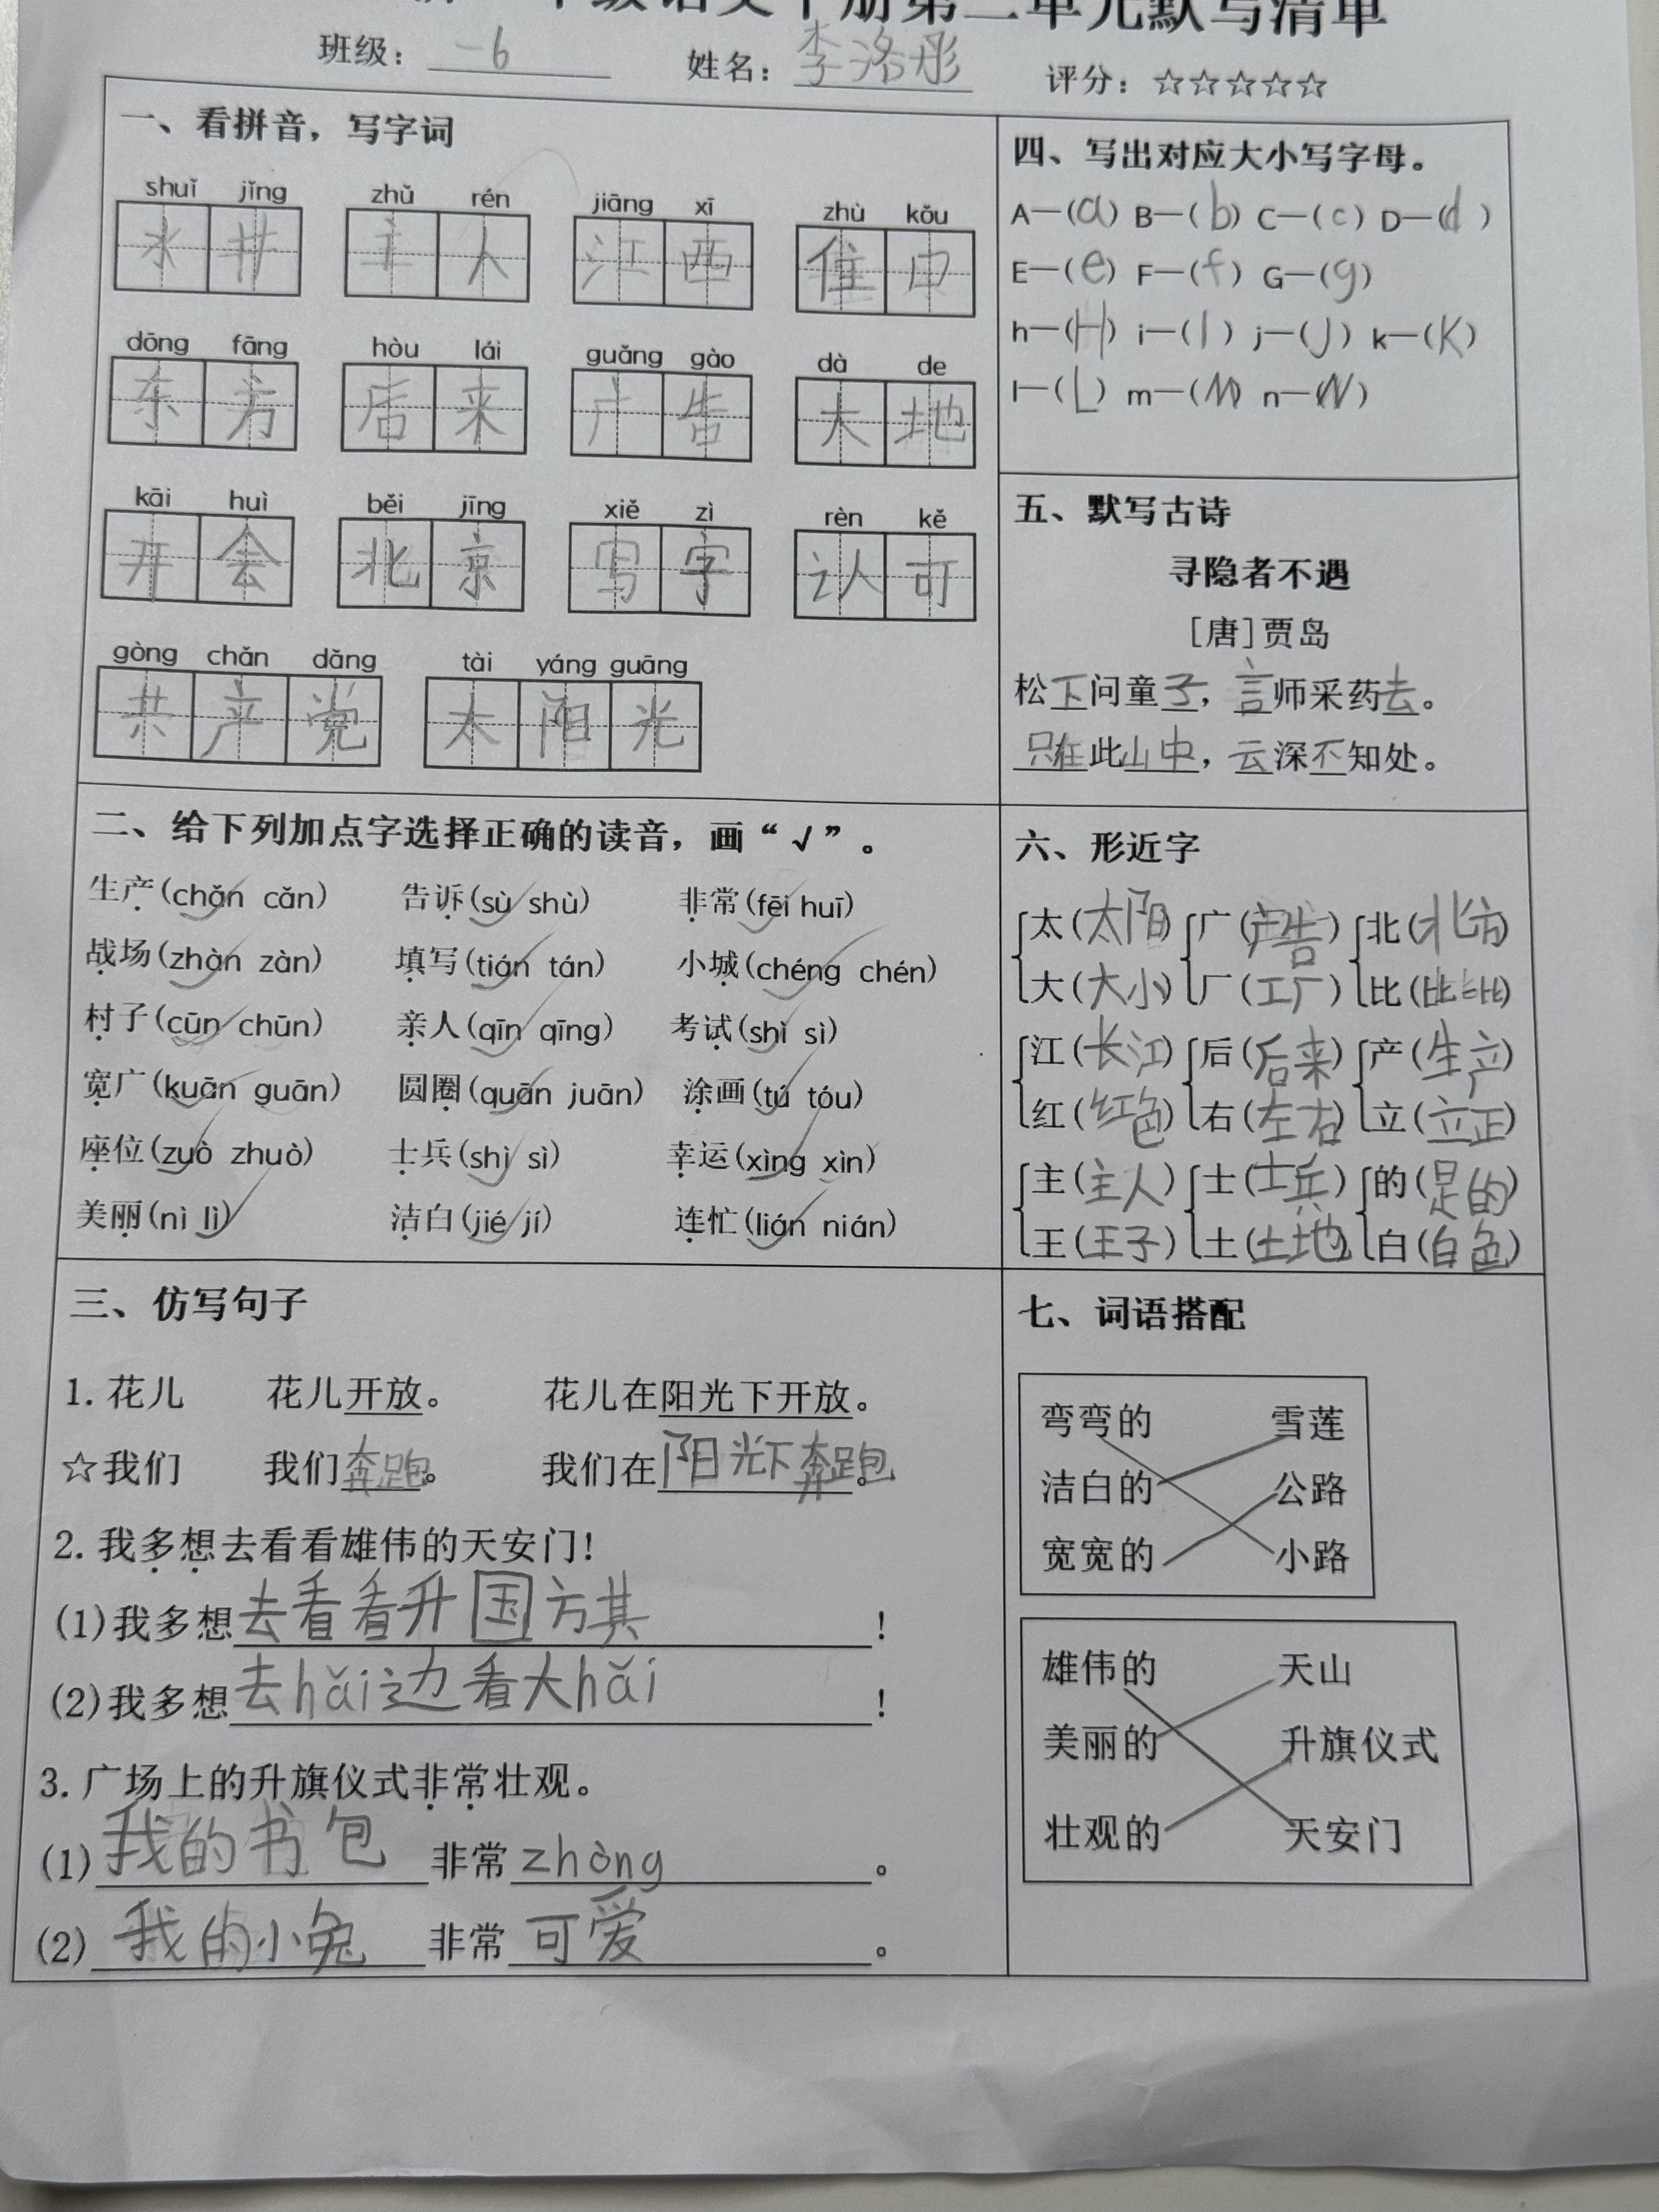 级语文下册第二单元默写清单
班级：一6 姓名：李洛彤 评分：☆☆☆☆☆
一、看拼音，写字词
shuǐ jǐng zhǔ rén jiāng xī zhù kǒu
水井 主人 江西 住口
dōng fāng hòu lái guǎng gào dà de
东方 后来 广告 大地
kāi huì běi jīng xiě zì rèn kě
开会 北京 写字 认可
gòng chǎn dǎng tài yáng guāng
共产党 太阳光
二、给下列加点字选择正确的读音，画“√”。
生产(chǎn cǎn) 告诉(sù shù) 非常(fēi huī)
战场(zhàn zàn) 填写(tián tán) 小城(chéng chén)
村子(cūn chūn) 亲人(qīn qīng) 考试(shì sì)
宽广(kuān guān) 圆圈(quān juān) 涂画(tú tóu)
座位(zuò zhuò) 士兵(shì sì) 幸运(xìng xìn)
美丽(nì lì) 洁白(jié jí) 连忙(lián nián)
三、仿写句子
1.花儿 花儿开放。 花儿在阳光下开放。
☆我们 我们奔跑。 我们在阳光下奔跑。
2.我多想去看看雄伟的天安门！
(1)我多想去看看升国方其！
(2)我多想去hǎi边看大hǎi！
3.广场上的升旗仪式非常壮观。
(1)我的书包非常zhòng。
(2)我的小兔非常可爱。
四、写出对应大小写字母。
A—(a) B—(b) C—(c) D—(d)
E—(e) F—(f) G—(g)
h—(H) i—(I) j—(J) k—(K)
l—(L) m—(M) n—(N)
五、默写古诗
寻隐者不遇
[唐]贾岛
松下问童子，言师采药去。
只在此山中，云深不知处。
六、形近字
太(太阳) 广(广告) 北(北方)
大(大小) 厂(工厂) 比(比比)
江(长江) 后(后来) 产(生产)
红(红色) 右(左右) 立(立正)
主(主人) 士(士兵) 的(是的)
王(王子) 土(土地) 白(白色)
七、词语搭配
弯弯的 雪莲
洁白的 公路
宽宽的 小路
雄伟的 天山
美丽的 升旗仪式
壮观的 天安门